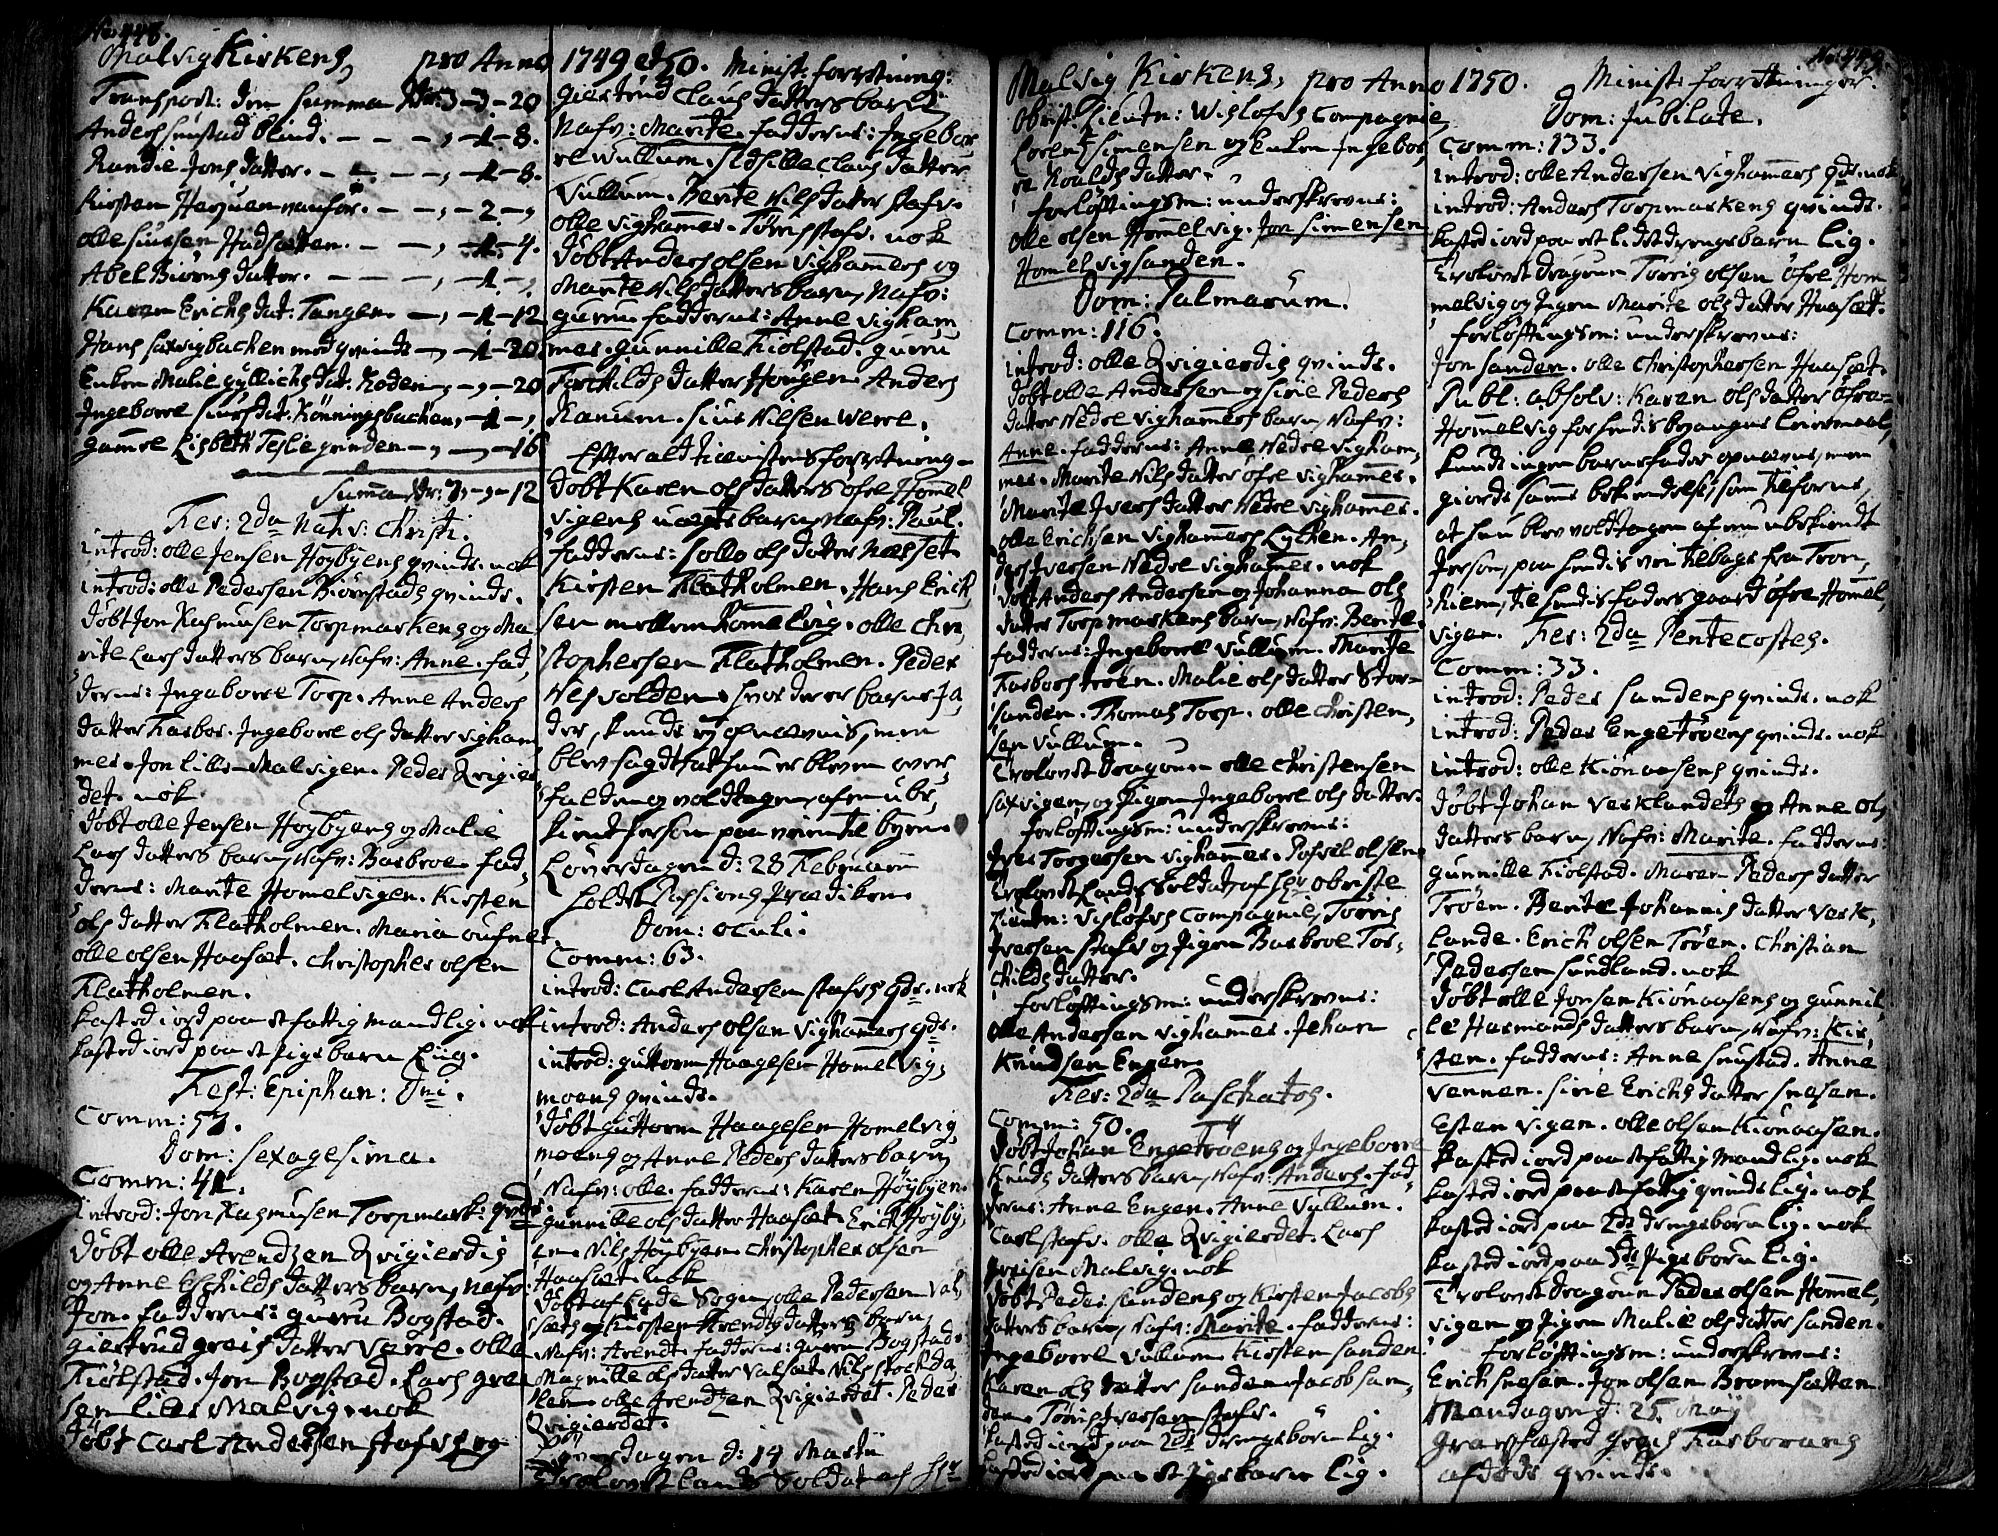 No 448.
Malvig Kirkens, pro Anno 1749 et 50. Minist: forretning:
Transport: den Summa Rdr: 3-3-20
Anders Snustad blind. - - - , -1- 8.
Randie Jons datter. - - - , -1- 8.
Kirsten - , - 2 - ,
olle Hadsætten. - - , -1- 4.
Abel Biörns datter. - - - , -1- ,
Karen Erichs dat: Tangen. - , -1- 12
Hans Saxvigbachen med qvinde - , -1- 20.
Enken Malie dat: - , - , - 20
Ingeborre Siurs dat: Rönningsbachen, -1- ,
gamle Lisbeth Teslie qvinden - , - , - 16
Summa Rdr: 7, - , - 12
Fer: 2da Nativ: Christi.
introd: olle Jensen Höybyens qvinde. nok
introd: olle Pedersen Biörnstads qvinde.
döbt Jon Rasmusen Torpmarkens og Ma
rite Lars datters barn, Nafv: Anne. fad,
derne: Ingeborre Torp. Anne Anders
datter Karbor. Ingeborre ols datter Vigham
mer. Jon lille-Malvigen. Peder Qvigier
det. nok
döbt olle Jensen Höybyens og Malie
Lars datters barn, Nafv: Barbroe. fad,
derne: Marite Homelvigen. Kirsten
ols datter Flatholmen. Maria
olle olsen Haasæt. Christopher olsen
Flatholmen.
kasted iord paa et fattig mands lig. nok
kasted iord paa et Pige barn Liig.
Fest: Epiphan: Dni.
Comm: 57.
Dom: Sexagesima.
Comm: 41.
introd: Jon Rasmusen Torpmark: qvde
döbt olle Arendtzen Qvigierdis
og Anne Eschilds datters barn, nafv:
Jon. fadderne: guru Bogstad.
giertrud greis datter Værre. olle
Kiölstad. Jon Bogstad. Lars gre
sen lille Malvig. nok
döbt Carl Andersen Stafs og
giertrud Claus datters barn
Nafv: Marite. fadderne: Ingebor
re Vullum. Sidsille Claus datter
Vullum. Berite Nils datter Stafr.
olle Vighammer. Tönis Stafr. nok
döbt Anders olsen Vighammers og
Marite Nils datters barn, Nafv:
guru. fadderne: Anne Vigham,
mer. gunnille Kiölstad. guru
Torchilds datter Hougen. Anders
Ranum. Siur Nilsen Were.
Efter
döbt Karen ols datters öfre Homel
vigens uægte barn, Nafv: Paul.
fadderne: Sollo ols datter Næsset.
Kirsten Flatholmen. Hans Erick,
sen mellem Homelvig. olle Chri,
stophersen Flatholmen. Peder
Nesvolden. hvor der er barne fa,
der, kunde ey opnævnis, men
blev sagdt at hun er bleven over,
falden og voldtagen, af en ube,
kiendt Person paa veien til byen.
Löverdagen d: 28 Februarii
holdt Passions Prædiken.
Dom: oculi.
Comm: 63.
introd: Carl Andersen Stafrs qde. nok
introd: Anders olsen Vighamers qde.
introd: guttorm Haagesen Homelvig,
moens qvinde.
döbt guttorm Haagesen Homelvig,
moens og Anne Peders datters barn,
Nafv: olle. fadderne: Karen Höybyen.
gunnille ols datter Haasæt. Erich Höyby,
en. Nils Höybyen. Christopher olsen
Haasæt. nok
döbt af Lade Sogn, olle Pedersen Val,
sæts og Kirsten Arendts datters barn,
Nafv: Arendt. fadderne: guru Bogstad.
Magnille ols datter Valsæt. Nils Stockda,
len. olle Arendtzen Qvigierdet. Peder
Qvigierdet.
Löverdagen d: 14 Martii
Trolovet Lands Soldat af Hr
No 449.
Malvig Kirkens, pro Anno 1750. Minist: forretninger.
Obrist: Lieutn: Wislofs Compagnie,
Lorentz Simensen og Enken Ingebor,
re Roalds datter.
forlöftingsm: underskrevne:
olle olsen Homelvig. Jon Simensen
Homelvigsanden.
Dom: Palmarum.
Comm: 116.
introd: olle Qvigierdis qvinde.
döbt olle Andersen og Sirie Peders
datter Nedre Vighammers barn, Nafv:
Anne. fadderne: Anne Nedre Vigham,
mer. Marite Nils datter öfre Vighammer.
Marite Ivers datter Nedre Vighammer.
olle Erichsen Vighammers Lychen. An,
ders Iversen Nedre Vighammer. nok
döbt Anders Andersen og Johanna ols
datter Torpmarkens barn, Nafv: Berite.
fadderne: Ingeborre Vullum. Marite
Karbors tröen. Malie ols datter Stor-
sanden. Thomas Torp. olle Christen,
sen Vullum.
Trolovet Dragoun olle Christensen
Saxvigen, og Pigen Ingeborre ols datter.
forlöftingsm: underskrevne:
Iver Torgersen Vighammer. Pofvel olsen
Trolovet Lands Soldat af Hr Obriste
Lieutn: Vislofs Compagnie, Tönis
Iversen Stafr og Pigen Barbroe Tor,
childs datter.
forlöftingsm: underskrevne:
olle Andersen Vighammer. Johan
Knudsen Engen.
Fer: 2da Paschatos.
Comm: 50.
döbt Johan Engetröens og Ingeborre
Knuds datters barn, Nafv: Anders. fad,
derne: Anne Engen. Anne Vullum.
Carl Stafr. olle Qvigierdet. Lars
greisen Malvig. nok
döbt Peder Sandens og Kirsten Jacobs
datters barn, Nafv: Marite. fadderne:
Ingeborre Vullum. Kirsten Sanden.
Karen ols datter Sanden. Jacob San,
den. Tönis Iversen Stafr.
kasted iord paa 2de drengebörn Lig.
kasted iord paa et Pigebarn Lig.
Dom: Jubilate.
Comm: 133.
introd: olle Andersen Vighammers qde. nok
introd: Anders Torpmarkens qvinde.
kasted iord paa et lidet drengebarn Lig.
Trolovet Dragoun Tönnis olsen öfre Hom
melvig og Pigen Marite ols datter Haasæt.
forlöftingsm: underskrevne:
Jon Sanden. olle Christophersen Haasæt.
Publ: absolv: Karen ols datter öfre-
Hommelvig for hendis begangne Leiermaal,
kunde ingen barnefader opnævne, men
giorde samme bekiendelse, som tilforne,
at hun blev voldtagen af en ubekiendt
Person, paa hendis vei tilbage fra Tron,
hiem, til hendis faders gaard öfre Homel,
vigen. Fer: 2da Pentecostes.
Comm: 33.
introd: Peder Sandens qvinde. nok
introd: Peder Engetröens qvinde. nok
introd: olle Kiönaasens qvinde.
döbt Johan Verklandets og Anne ols
datters barn, Nafv: Marite. fadderne:
gunnille Kiölstad. Maren Peders datter
Tröen. Berite Johannis datter Verk,
lande. Erich olsen Tröen. Christian
Pedersen Sundland. nok
döbt olle Jonsen Kiönaasens og gunnil
le Hermands datters barn, Nafv: Kir,
sten. fadderne: Anne Snustad. Anne
Vennen. Sirie Erichs datter Snesen.
Esten Vigen. olle olsen Kiönaasen.
kasted iord paa et fattig Mands lig. nok
kasted iord paa et fattig qvinde lig. nok
kasted iord paa 2de drengebörn lig. nok
kasted iord paa Pigebörn lig.
Trolovet Dragoun Peder olsen Hommel,
vigen og Pigen Malie ols datter Sanden.
forlöftingsm: underskrevne:
Erich Snesen. Jon olsen Bromsætten.
Mandagen d: 25 Maÿ
graefæsted greis Karborans
afdöde qvinde.